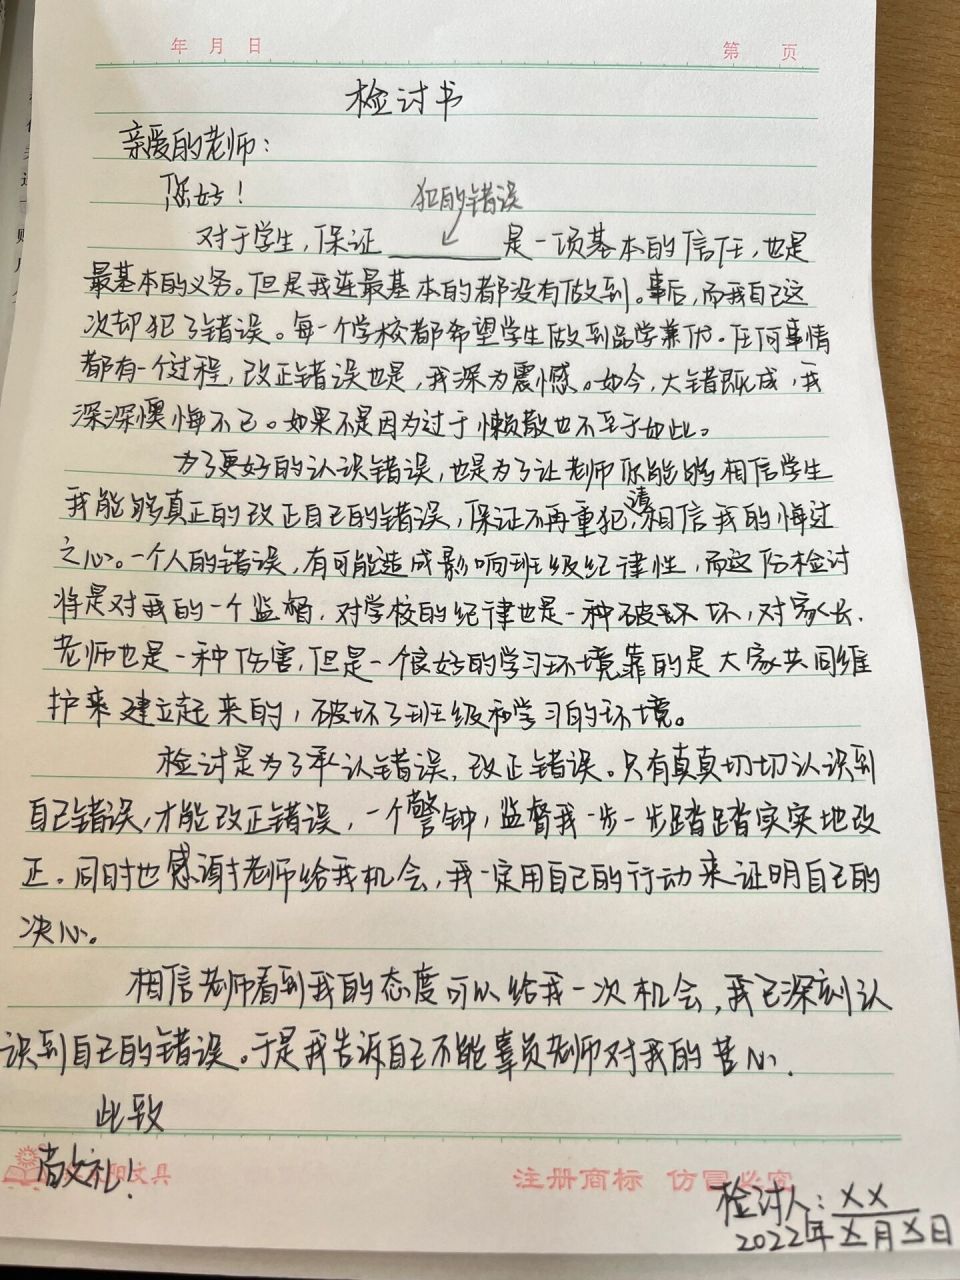 年 月 日
第 页
检讨书
亲爱的老师：
您好！
犯的错误
对于学生，保证＿＿＿＿是一项基本的信任，也是
最基本的义务。但是我连最基本的都没有做到。事后，而我自己这
次却犯了错误。每一个学校都希望学生做到品学兼优。任何事情
都有一个过程，改正错误也是，我深为震憾。如今，大错既成，我
深深懊悔不已。如果不是因为过于懒散也不至于如此。
为了更好的认识错误，也是为了让老师你能够相信学生
我能够真正的改正自己的错误，保证不再重犯，请相信我的悔过
之心。一个人的错误，有可能造成影响班级纪律性，而这份检讨
将是对我的一个监督，对学校的纪律也是一种破坏，对家长.
老师也是一种伤害，但是一个良好的学习环境靠的是大家共同维
护来建立起来的，破坏了班级和学习的环境。
检讨是为了承认错误，改正错误。只有真真切切认识到
自己错误，才能改正错误，一个警钟，监督我一步一步踏踏实实地改
正。同时也感谢老师给我机会，我一定用自己的行动来证明自己的
决心。
相信老师看到我的态度可以给我一次机会，我已深刻认
识到自己的错误。于是我告诉自己不能辜负老师对我的苦心.
此致
敬礼！
阳文具
注册商标 仿冒必究
检讨人：XX
2022年X月X日